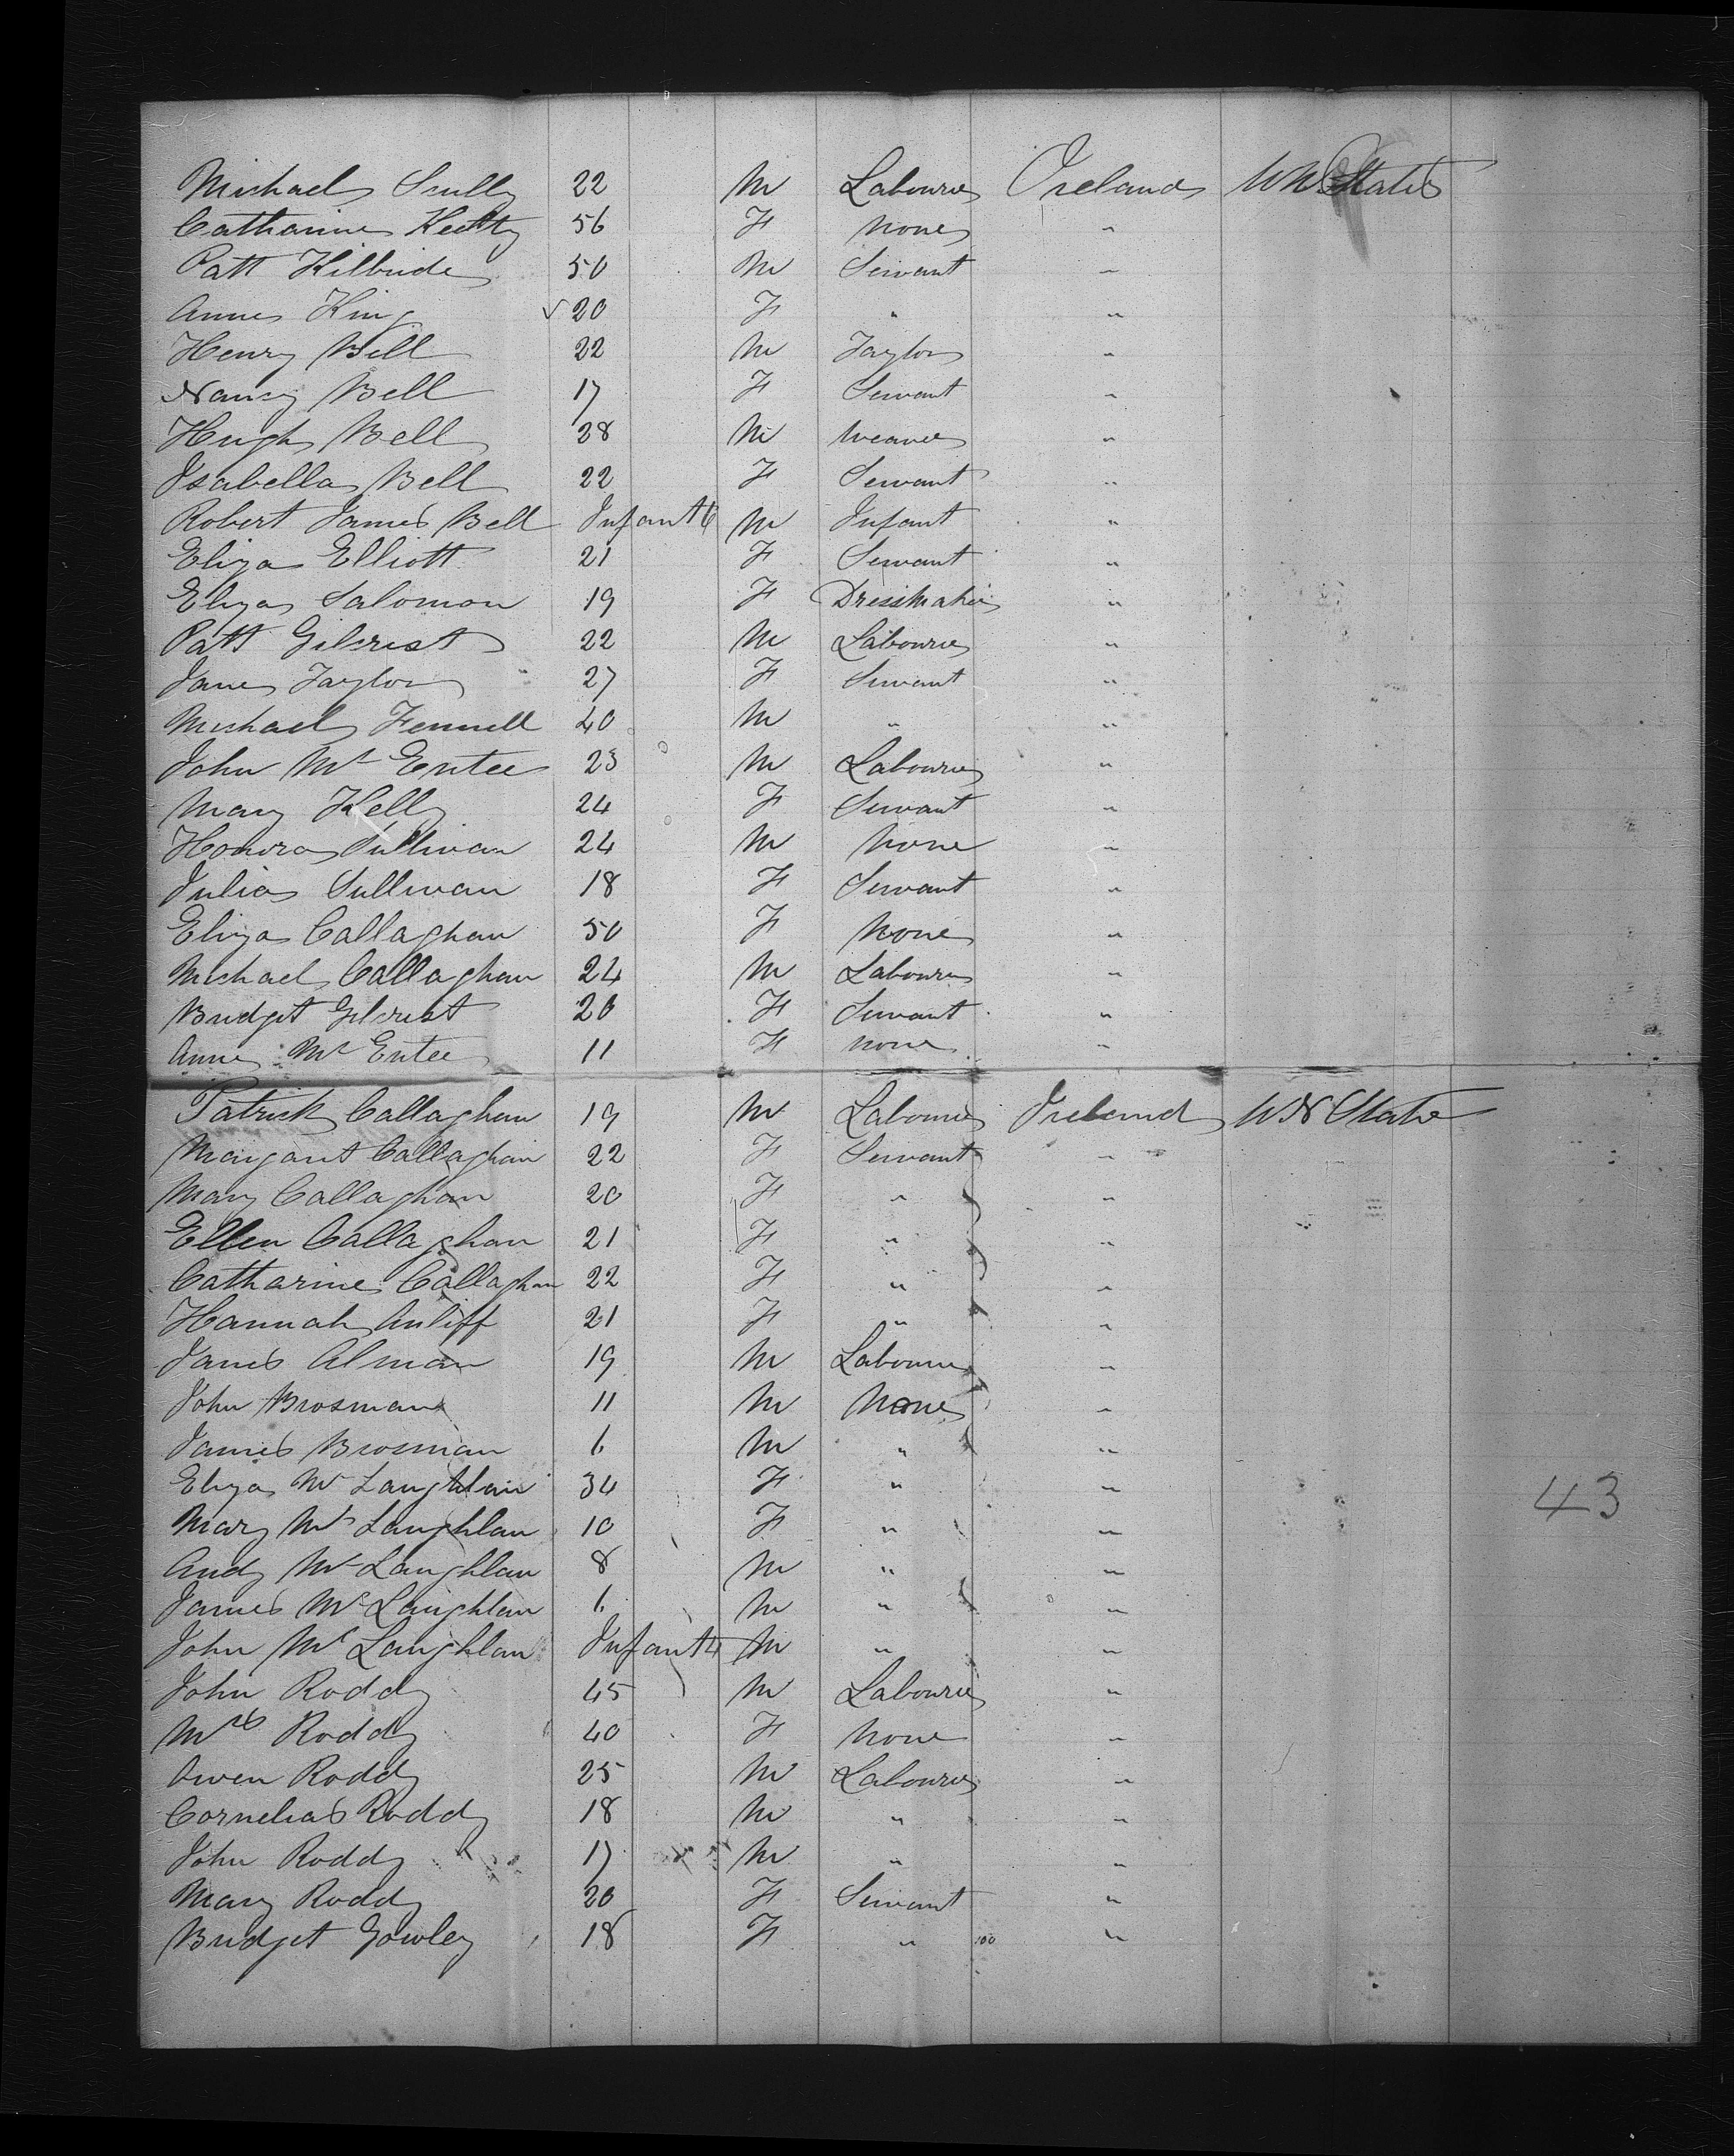 Michael Scully 22 M Labourer Ireland Un States
Catharine Keatty 56 F None "
Patt Kilbride 50 M Servant "
Anne King √ 20 F " "
Henry Bell 22 M Taylor "
Nancy Bell 17 F Servant "
Hugh Bell 28 M Weaver "
Isabella Bell 22 F Servant "
Robert James Bell Infant 6 M Infant "
Eliza Elliott 21 F Servant "
Eliza Salomon 19 F Dressmaker "
Patt Gilcrest 22 M Labourer "
Jane Taylor 27 F Servant "
Michael Fennell 40 M " "
John Mc Entee 23 M Labourer "
Mary Kelly 24 F Servant "
Honora Sullivan 24 M None "
Julia Sullivan 18 F Servant "
Eliza Callaghan 50 F None "
Michael Callaghan 24 M Labourer "
Bridget Gilcrest 20 F Servant "
Anne Mc Entee 11 F None "
Patrick Callaghan 19 M Labourer Ireland Un State
Margaret Callaghan 22 F Servant "
Mary Callaghan 20 F " "
Ellen Callaghan 21 F " "
Catharine Callaghan 22 F " "
Hannah 21 F " "
James Alman 19 M Labourer "
John Brosman 11 M None "
James Brosman 6 M " "
Eliza Mc Laughlan 34 F " " 43
Mary Mc Laughlan 10 F " "
Andy Mc Laughlan 8 M " "
James Mc Laughlan 6 M " "
John Mc Laughlan Infant 4 M " "
John Roddy 45 M Labourer "
Mrs Roddy 40 F None "
Owen Roddy 25 M Labourer "
Cornelias Roddy 18 M " "
John Roddy 17 M " "
Mary Roddy 20 F Servant "
Bridget Gowley 18 F " 100 "